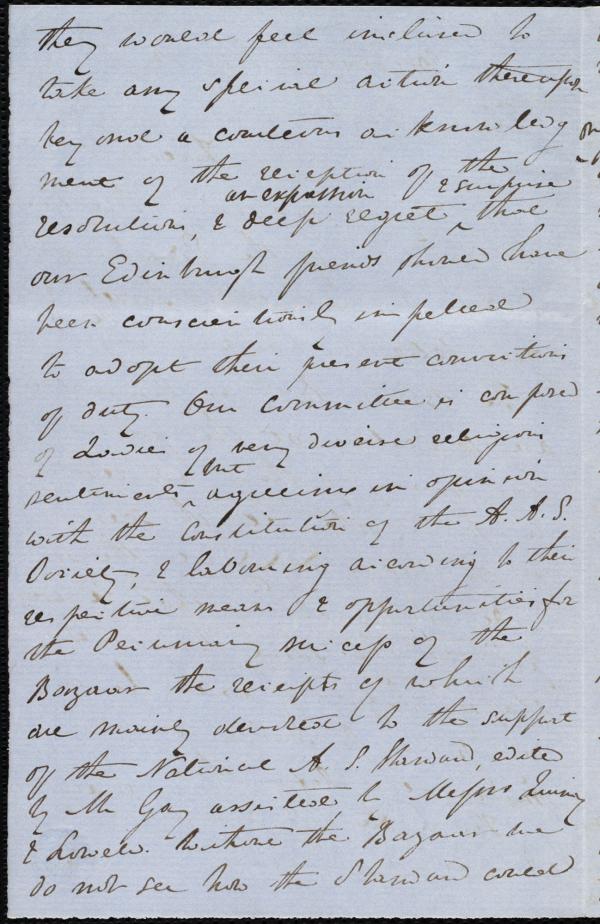 they would feel inclined to
take any special action thereupon
beyond a courteous acknowledg
ment of the reception of the
an expression & surprise
resolutions, & deep regret ^ that
our Edinburgh friends should have
been conscientiously impelled
to adopt their present convictions
of duty. Our Committee is composed
of Ladies of very diverse religious
but
sentiments ^ agreeing in opinion
with the Constitution of the A. A. S.
Society, & labouring according to their
respective means & opportunities for
the Pecuniary success of the
Bazaar the receipts of which
are mainly devoted to the support
of the National A. S. Standard, edited
by Mr Gay assisted by Messrs Quincy
& Lowell. Without the Bazaar we
do not see how the Standard could